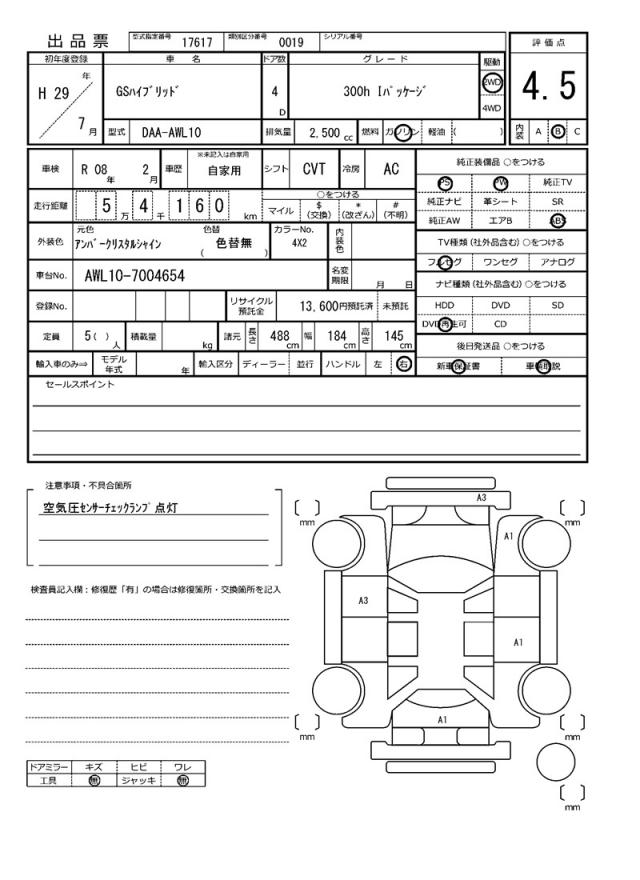 出品票 型式指定番号 17617 類別区分番号 0019 シリアル番号
評価点
4.5
内装 A B C
初年度登録 車名 ドア数 グレード 駆動
H 29 年 GSハイブリッド 4 D 300h Iパッケージ 2WD
4WD
7 月 型式 DAA-AWL10 排気量 2,500 cc 燃料 ガソリン 軽油 ( )
車検 R 08 年 2 月 車歴 ※未記入は自家用 自家用 シフト CVT 冷房 AC
走行距離 5 万 4 千 1 6 0 km ○をつける
マイル $(交換) *(改ざん) #(不明)
外装色 元色 アンバークリスタルシャイン 色替 ( 色替無 ) カラーNo. 4X2 内装色
車台No. AWL10-7004654 名変期限 月 日
登録No. リサイクル預託金 13,600円預託済 未預託
定員 5( ) 人 積載量 kg 諸元 長さ 488 cm 幅 184 cm 高さ 145 cm
輸入車のみ⇒ モデル年式 年 輸入区分 ディーラー 並行 ハンドル 左 右
純正装備品 ○をつける
PS PW 純正TV
純正ナビ 革シート SR
純正AW エアB ABS
TV種類 (社外品含む) ○をつける
フルセグ ワンセグ アナログ
ナビ種類 (社外品含む) ○をつける
HDD DVD SD
DVD再生可 CD
後日発送品 ○をつける
新車保証書 車輌取説
セールスポイント
注意事項・不具合箇所
空気圧センサーチェックランプ点灯
検査員記入欄：修復歴「有」の場合は修復箇所・交換箇所を記入
A3
[ ] mm
[ ] mm
A1
A3
A1
A1
[ ] mm
[ ] mm
[ ] mm
ドアミラー キズ ヒビ ワレ
工具 無 ジャッキ 無